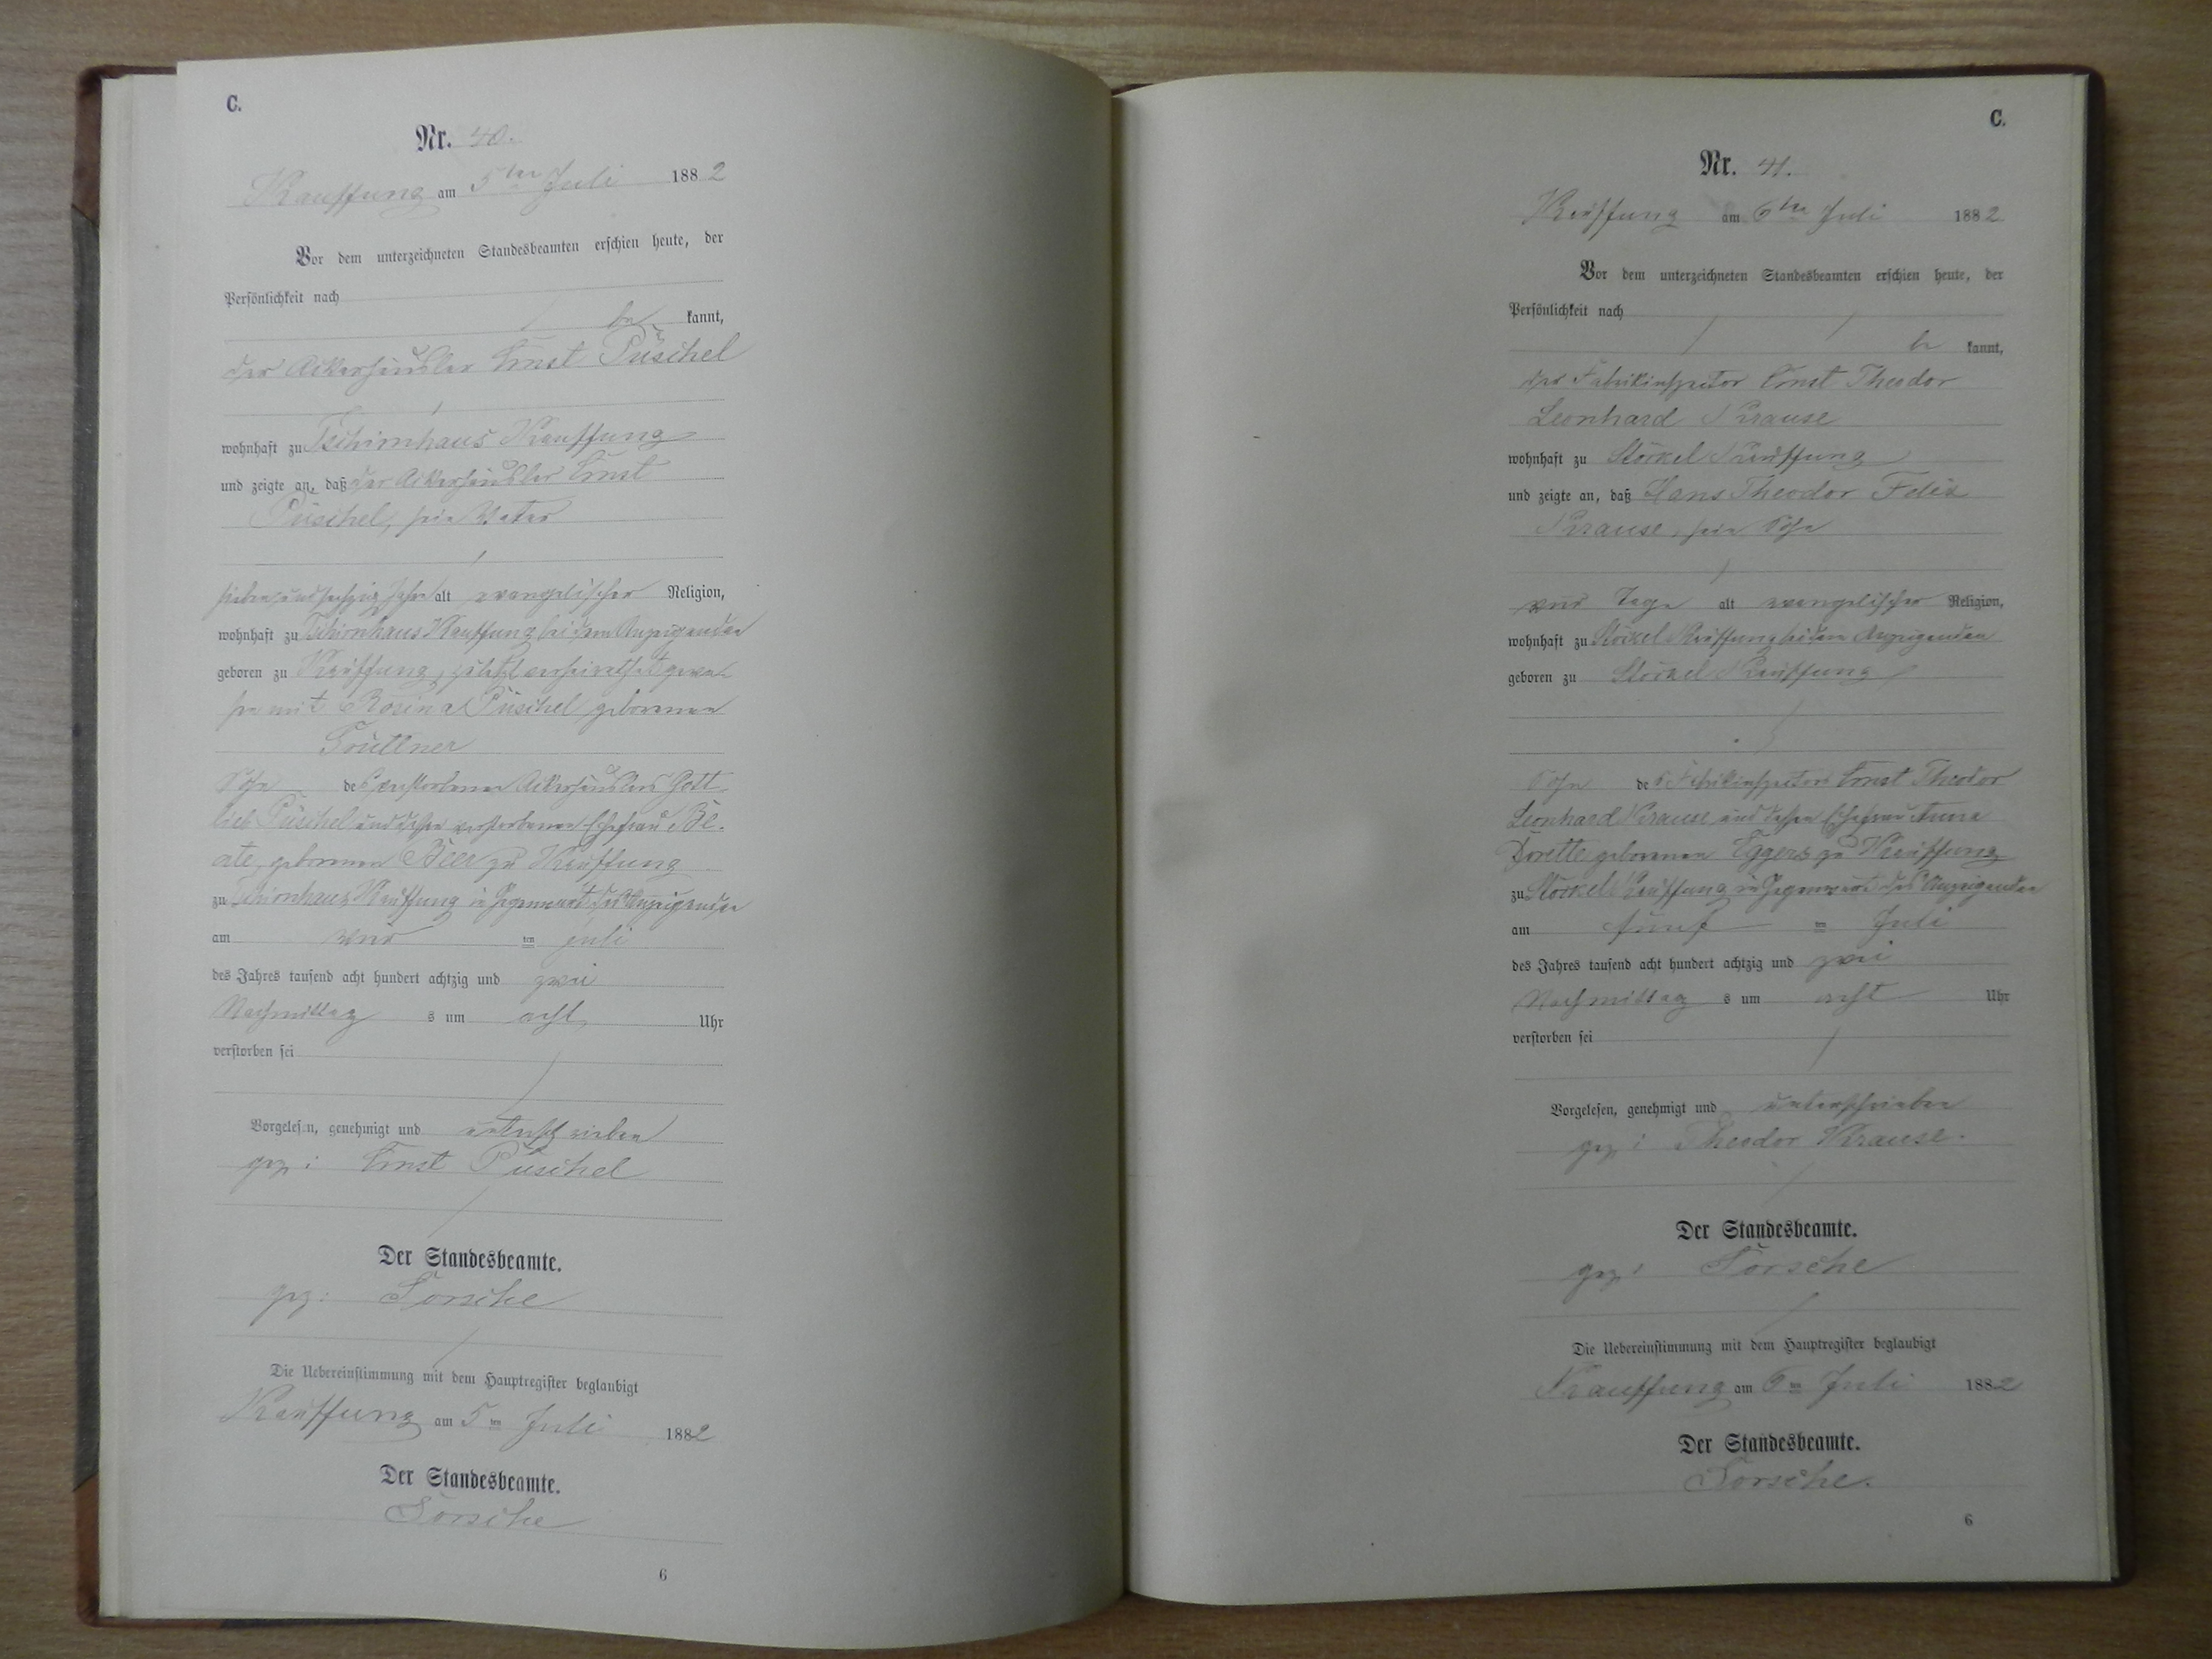 C.
Nr. 40.
Kauffung am 5ten Juli 1882
Vor dem unterzeichneten Standesbeamten erschien heute, der
Persönlichkeit nach
be kannt,
der Ackerhäusler Ernst Püschel
wohnhaft zu Tschirnhaus Kauffung
und zeigte an, daß der Ackerhäusler Ernst
Püschel, sein Vater
sieben und sechzig Jahre alt evangelischer Religion,
wohnhaft zu Tschirnhaus Kauffung bei dem Anzeigenden
geboren zu Kauffung, zuletzt verheirathet gewe-
sen mit Rosina Püschel geborenen
Grüttner
Sohn des verstorbenen Ackerhäuslers Gott-
lieb Püschel und dessen verstorbenen Ehefrau Be-
ate, geborenen Beer zu Kauffung
zu Tschirnhaus Kauffung in Gegenwart des Anzeigenden
am vier ten Juli
des Jahres tausend acht hundert achtzig und zwei
Nachmittag s um acht Uhr
verstorben sei
Vorgelesen, genehmigt und unterschrieben
gez: Ernst Püschel
Der Standesbeamte.
gez: Torsche
Die Uebereinstimmung mit dem Hauptregister beglaubigt
Kauffung am 5 ten Juli 1882
Der Standesbeamte.
Torsche
6
C.
Nr. 41.
Kauffung am 6ten Juli 1882
Vor dem unterzeichneten Standesbeamten erschien heute, der
Persönlichkeit nach
be kannt,
der Fabrikinspector Ernst Theodor
Leonhard Krause
wohnhaft zu Stöckel Kauffung
und zeigte an, daß Hans Theodor Felix
Krause, sein Sohn
vier Tage alt evangelischer Religion,
wohnhaft zu Stöckel Kauffung bei dem Anzeigenden
geboren zu Stöckel Kauffung
Sohn des Fabrikinspectors Ernst Theodor
Leonhard Krause und dessen Ehefrau Anna
Dorette geborenen Eggers zu Kauffung
zu Stöckel Kauffung in Gegenwart des Anzeigenden
am fünf ten Juli
des Jahres tausend acht hundert achtzig und zwei
Nachmittag s um acht Uhr
verstorben sei
Vorgelesen, genehmigt und unterschrieben
gez: Theodor Krause.
Der Standesbeamte.
gez: Torsche
Die Uebereinstimmung mit dem Hauptregister beglaubigt
Kauffung am 6 ten Juli 1882
Der Standesbeamte.
Torsche.
6